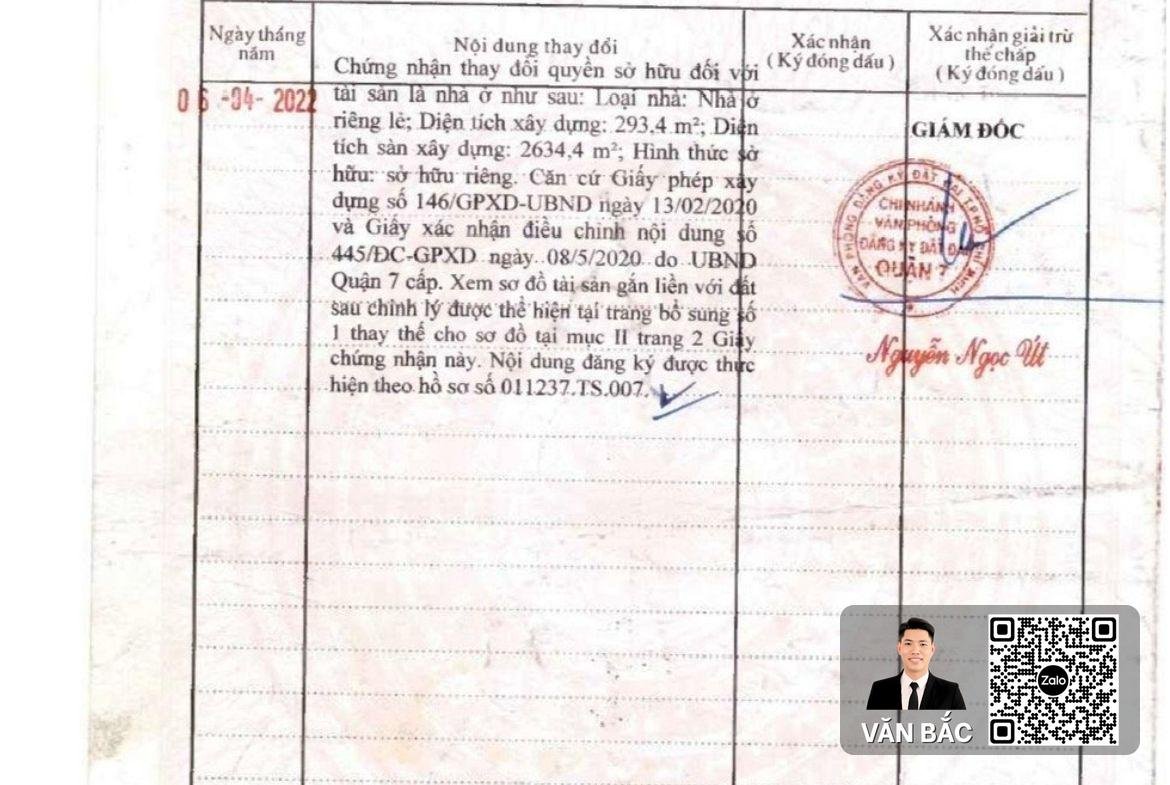 Ngày tháng năm
Nội dung thay đổi
Xác nhận
( Ký đóng dấu )
Xác nhận giải trừ
thế chấp
( Ký đóng dấu )
06 -04- 2022
Chứng nhận thay đổi quyền sở hữu đối với
tài sản là nhà ở như sau: Loại nhà: Nhà ở
riêng lẻ; Diện tích xây dựng: 293,4 m²; Diện
tích sàn xây dựng: 2634,4 m²; Hình thức sở
hữu: sở hữu riêng. Căn cứ Giấy phép xây
dựng số 146/GPXD-UBND ngày 13/02/2020
và Giấy xác nhận điều chỉnh nội dung số
445/ĐC-GPXD ngày 08/5/2020 do UBND
Quận 7 cấp. Xem sơ đồ tài sản gắn liền với đất
sau chỉnh lý được thể hiện tại trang bổ sung số
1 thay thế cho sơ đồ tại mục II trang 2 Giấy
chứng nhận này. Nội dung đăng ký được thực
hiện theo hồ sơ số 011237.TS.007.
GIÁM ĐỐC
VĂN PHÒNG ĐĂNG KÝ ĐẤT ĐAI T.P HỒ CHÍ MINH
CHI NHÁNH
VĂN PHÒNG
ĐĂNG KÝ ĐẤT ĐAI
QUẬN 7
Nguyễn Ngọc Út
Zalo
VĂN BẮC